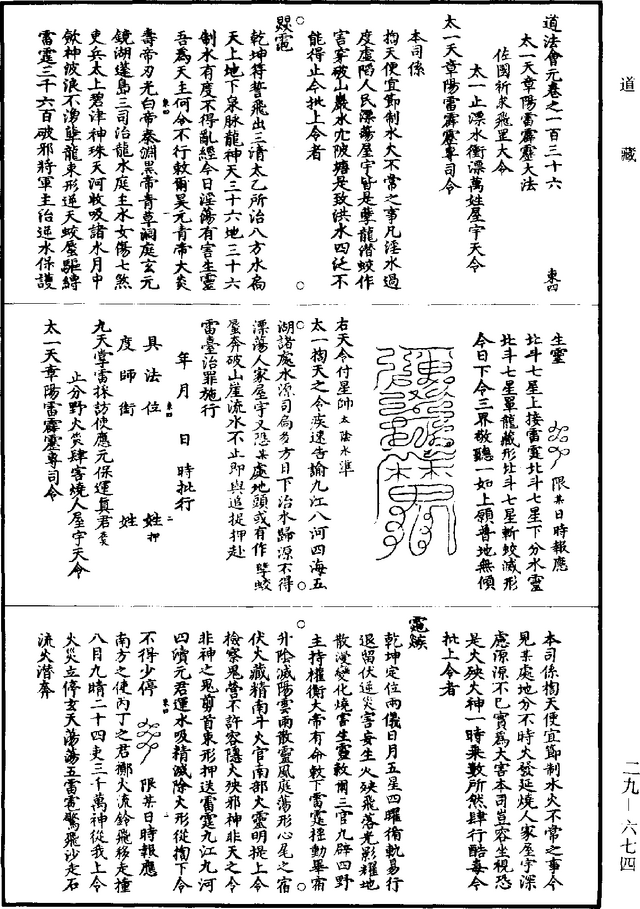 道藏
道法會元卷之一百三十六　東四
太一天章陽雷霹靂大法
佐國祈求飛罡大令
太一止漂水衝漂萬姓屋宇天令
太一天章陽雷霹靂專司令
本司係
掏天便宜節制水火不常之事凡淫水過
度虛陷人民漂蕩屋宇皆是孽龍潛蛟作
害穿破山巖水沉陂塘是致洪水四泛不
能得止今批上令者
乾坤符誓飛出三清太乙所治八方水扃
天上地下泉脉龍神天三十六地三十六
制水有度不得亂經今日淫蕩有害生靈
吾為天主何令不行敕爾昊元青帝大炎
壽帝刃光白帝秦淵黑帝青草洞庭玄元
鏡湖蓬島三司治龍水庭主水女傷七煞
吏兵太上碧津神珠天河敕吸諸水月中
斂神波浪不湧孽龍束形逆天蛟蜃驅縛
雷霆三千六百破邪將軍主治逆水保護
生靈　限某日時報應
北斗七星上接雷霆北斗七星下分水靈
北斗七星單龍藏形北斗七星斬蛟滅形
今日下令三界敬聽一如上領普地無傾
右天令付星帥太陰水準
太一掏天之令疾速告諭九江八河四海五
湖諸處水源司局多方日下治水歸源不得
漂蕩人家屋宇又恐某處地頭或有作孽蛟
蜃奔破山崖流水不止即與追捉押赴
雷臺治罪施行
年　月　日　時批行
具　法　位　姓　押
度　師　銜　姓
九天掌雷採訪使應元保運真君
止分野火災肆害燒人屋宇天令
太一天章陽雷霹靂專司令
本司係掏天便宜節制水火不常之事今
見某處地分不時火發延燒人家屋宇深
慮源源不已實為大害本司豈容坐視恐
是火殃火神一時乘數所然肆行酷毒今
批上令者
乾坤定位兩儀日月五星四曜衛軌易行
退留伏逆災害妄生火殃飛落光影耀地
散漫變化燒害生靈敕爾三官九辟四野
主持權衡大帝有命敕下雷霆搖動畢宿
外陰滅陽雲雨散靈風庭蕩形心尾之宿
伏火藏精南斗火官南部火靈明捉上令
檢察鬼營不許容隱火殃邪神非天之令
非神之鬼剪首束形押送雷霆九江九河
四瀆元君運水吸精滅除火形從掏下令
不得少停　限某日時報應
南方之使丙丁之君擲火流鈴飛移走撞
八月九晴二十四吏三千萬神從我上令
火災立停玄天蕩蕩五雷霆驚飛沙走石
流火潛奔
二九—六七四